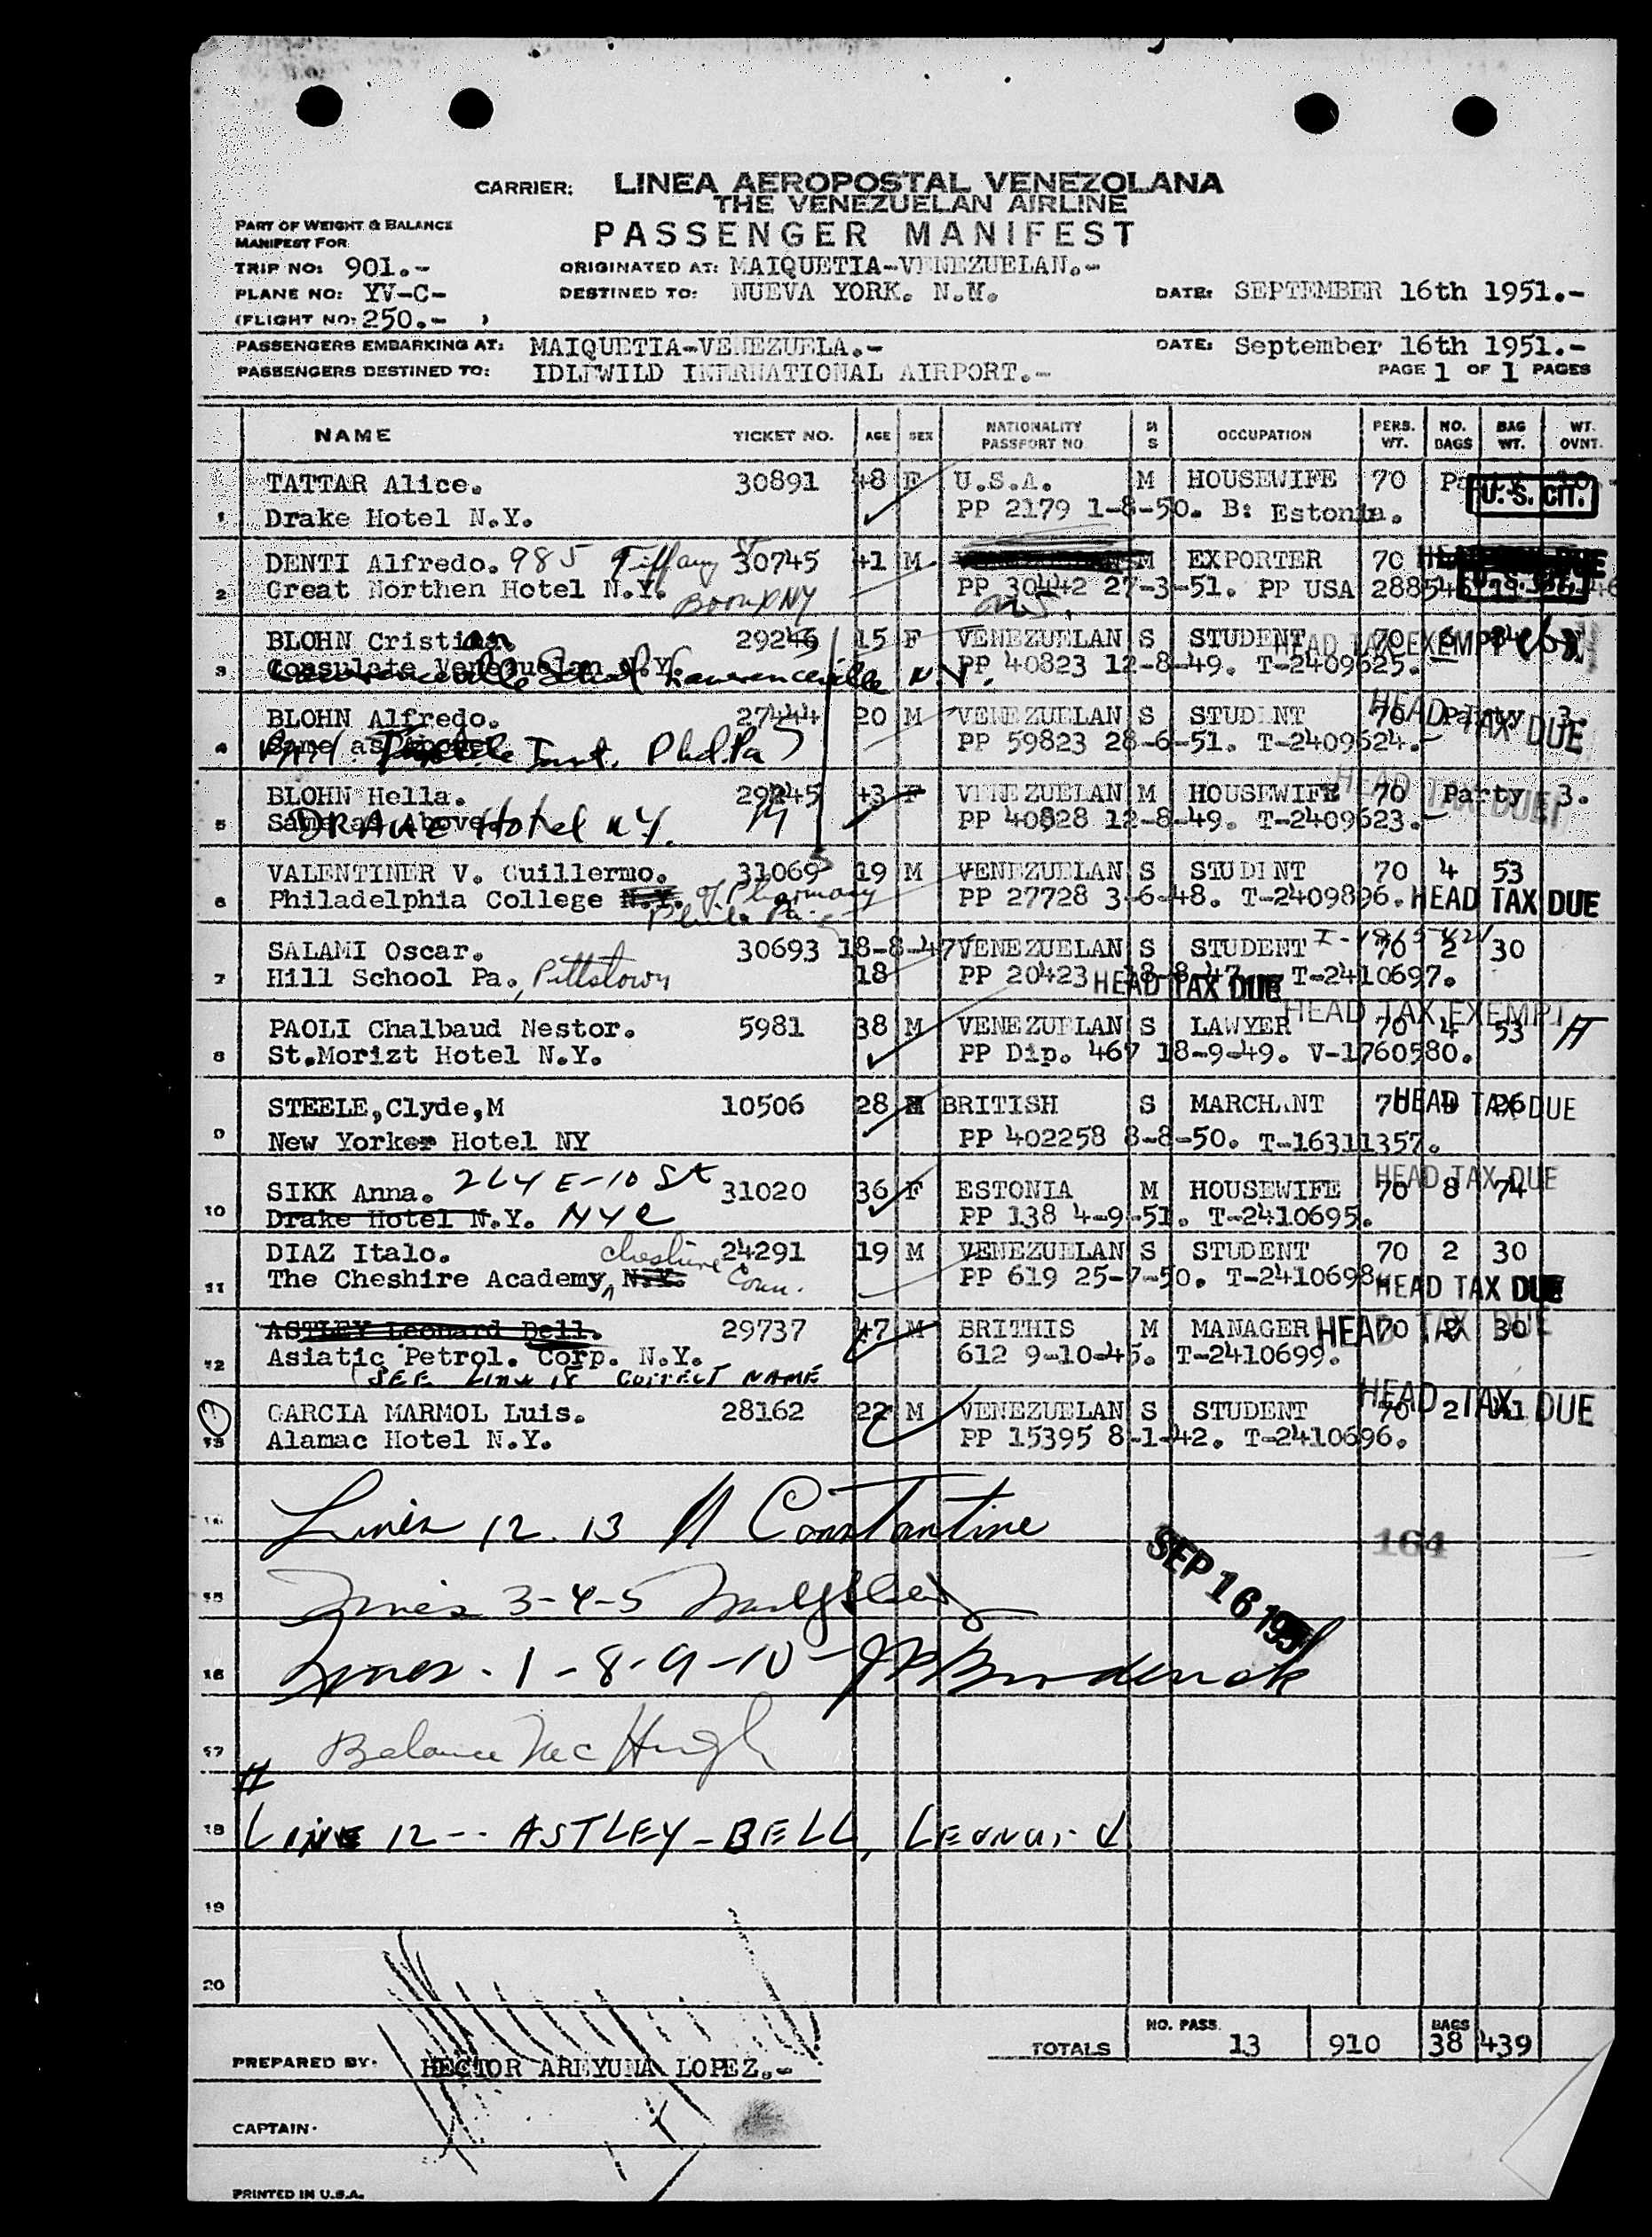 CARRIER: LINEA AEROPOSTAL VENEZOLANA
THE VENEZUELAN AIRLINE
PART OF WEIGHT & BALANCE
MANIFEST FOR
PASSENGER MANIFEST
TRIP NO: 901.- ORIGINATED AT: MAIQUETIA-VENEZUELAN.-
PLANE NO: YV-C- DESTINED TO: NUEVA YORK. N.Y. DATE: SEPTEMBER 16th 1951.-
(FLIGHT NO: 250.- )
PASSENGERS EMBARKING AT: MAIQUETIA-VENEZUELA.- DATE: September 16th 1951.-
PASSENGERS DESTINED TO: IDLEWILD INERNATIONAL AIRPORT.- PAGE 1 OF 1 PAGES
NAME TICKET NO. AGE SEX NATIONALITY PASSPORT NO M S OCCUPATION PERS. WT. NO. BAGS BAG WT. WT. OVNT.
TATTAR Alice. 30891 48 F U.S.A. M HOUSEWIFE 70 Party
1 Drake Hotel N.Y. PP 2179 1-8-50. B: Estonia. U.S. CIT.
DENTI Alfredo. 985 Tiffany St 30745 41 M M EXPORTER 70
2 Great Northen Hotel N.Y. Bronx NY PP 30442 27-3-51. PP USA
BLOHN Cristian 29246 15 F VENEZUELAN S STUDENT 70 6 HEAD TAX EXEMPT
3 Consulate Venezuelan N.Y. Lawrenceville N.Y. PP 40823 12-8-49. T-2409625.
BLOHN Alfredo. 27444 20 M VENEZUELAN S STUDENT 70 Party 3. HEAD TAX DUE
4 Same as Above Textile Inst. Phil.Pa PP 59823 28-6-51. T-2409624.-
BLOHN Hella. 29245 43 F VENEZUELAN M HOUSEWIFE 70 Party 3. HEAD TAX DUE
5 Same as Above DRAKE Hotel NY. PP 40828 12-8-49. T-2409623.-
VALENTINER V. Guillermo. 31069 19 M VENEZUELAN S STUDENT 70 4 53
6 Philadelphia College N.Y. of Pharmacy Phila Pa PP 27728 3-6-48. T-2409896. HEAD TAX DUE
SALAMI Oscar. 30693 18-8-47 VENEZUELAN S STUDENT 70 2 30
7 Hill School Pa., Pittstown 18 PP 20423 18-8-47 T-2410697. HEAD TAX DUE
PAOLI Chalbaud Nestor. 5981 38 M VENEZUELAN S LAWYER 70 4 53 HEAD TAX EXEMPT
8 St.Morizt Hotel N.Y. PP Dip. 467 18-9-49. V-1760580.
STEELE,Clyde,M 10506 28 M BRITISH S MARCHANT 70 26 HEAD TAX DUE
9 New Yorker Hotel NY PP 402258 8-8-50. T-16311357.
SIKK Anna. 264 E-10 St 31020 36 F ESTONIA M HOUSEWIFE 70 8 74 HEAD TAX DUE
10 Drake Hotel N.Y. NYC PP 138 4-9-51. T-2410695.
DIAZ Italo. 24291 19 M VENEZUELAN S STUDENT 70 2 30
11 The Cheshire Academy, N.Y. Cheshire Conn. PP 619 25-7-50. T-2410698. HEAD TAX DUE
ASTLEY Leonard Bell. 29737 47 M BRITHIS M MANAGER 70 2 30 HEAD TAX DUE
12 Asiatic Petrol. Corp. N.Y. 612 9-10-45. T-2410699.
(SEE LINE 18 CORRECT NAME
GARCIA MARMOL Luis. 28162 22 M VENEZUELAN S STUDENT 70 2 HEAD TAX DUE
13 Alamac Hotel N.Y. PP 15395 8-1-42. T-2410696.
14 Lines 12. 13 A Constantine 164
SEP 16 1951
15 Lines 3-4-5
16 Lines - 1-8-9-10- JP Broderick
17 Balance McHugh
18 LINE 12-- ASTLEY-BELL, Leonard
19
20
TOTALS NO. PASS. 13 910 BAGS 38 439
PREPARED BY: HECTOR AREYUNA LOPEZ.-
CAPTAIN:
PRINTED IN U.S.A.